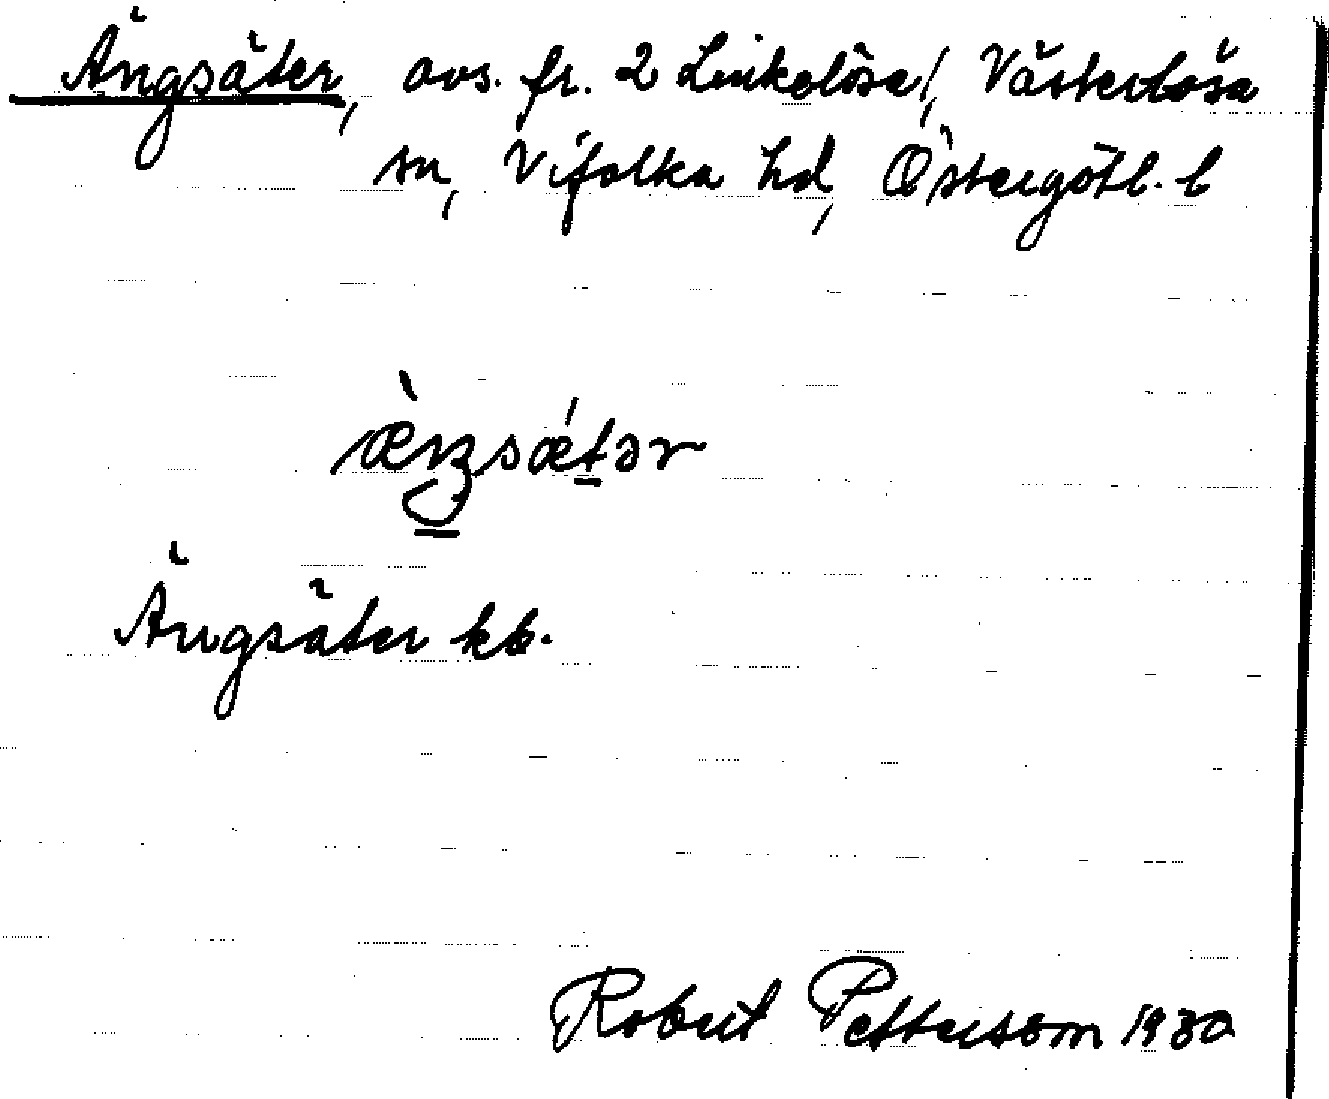 Ängsäter, avs. fr. 2 Linkelösa, Västerlösa
sn, Vifolka hd, Östergötl. l
æ̀ŋsǽtər
Ängsäter kb.
Robert Pettersson 1930